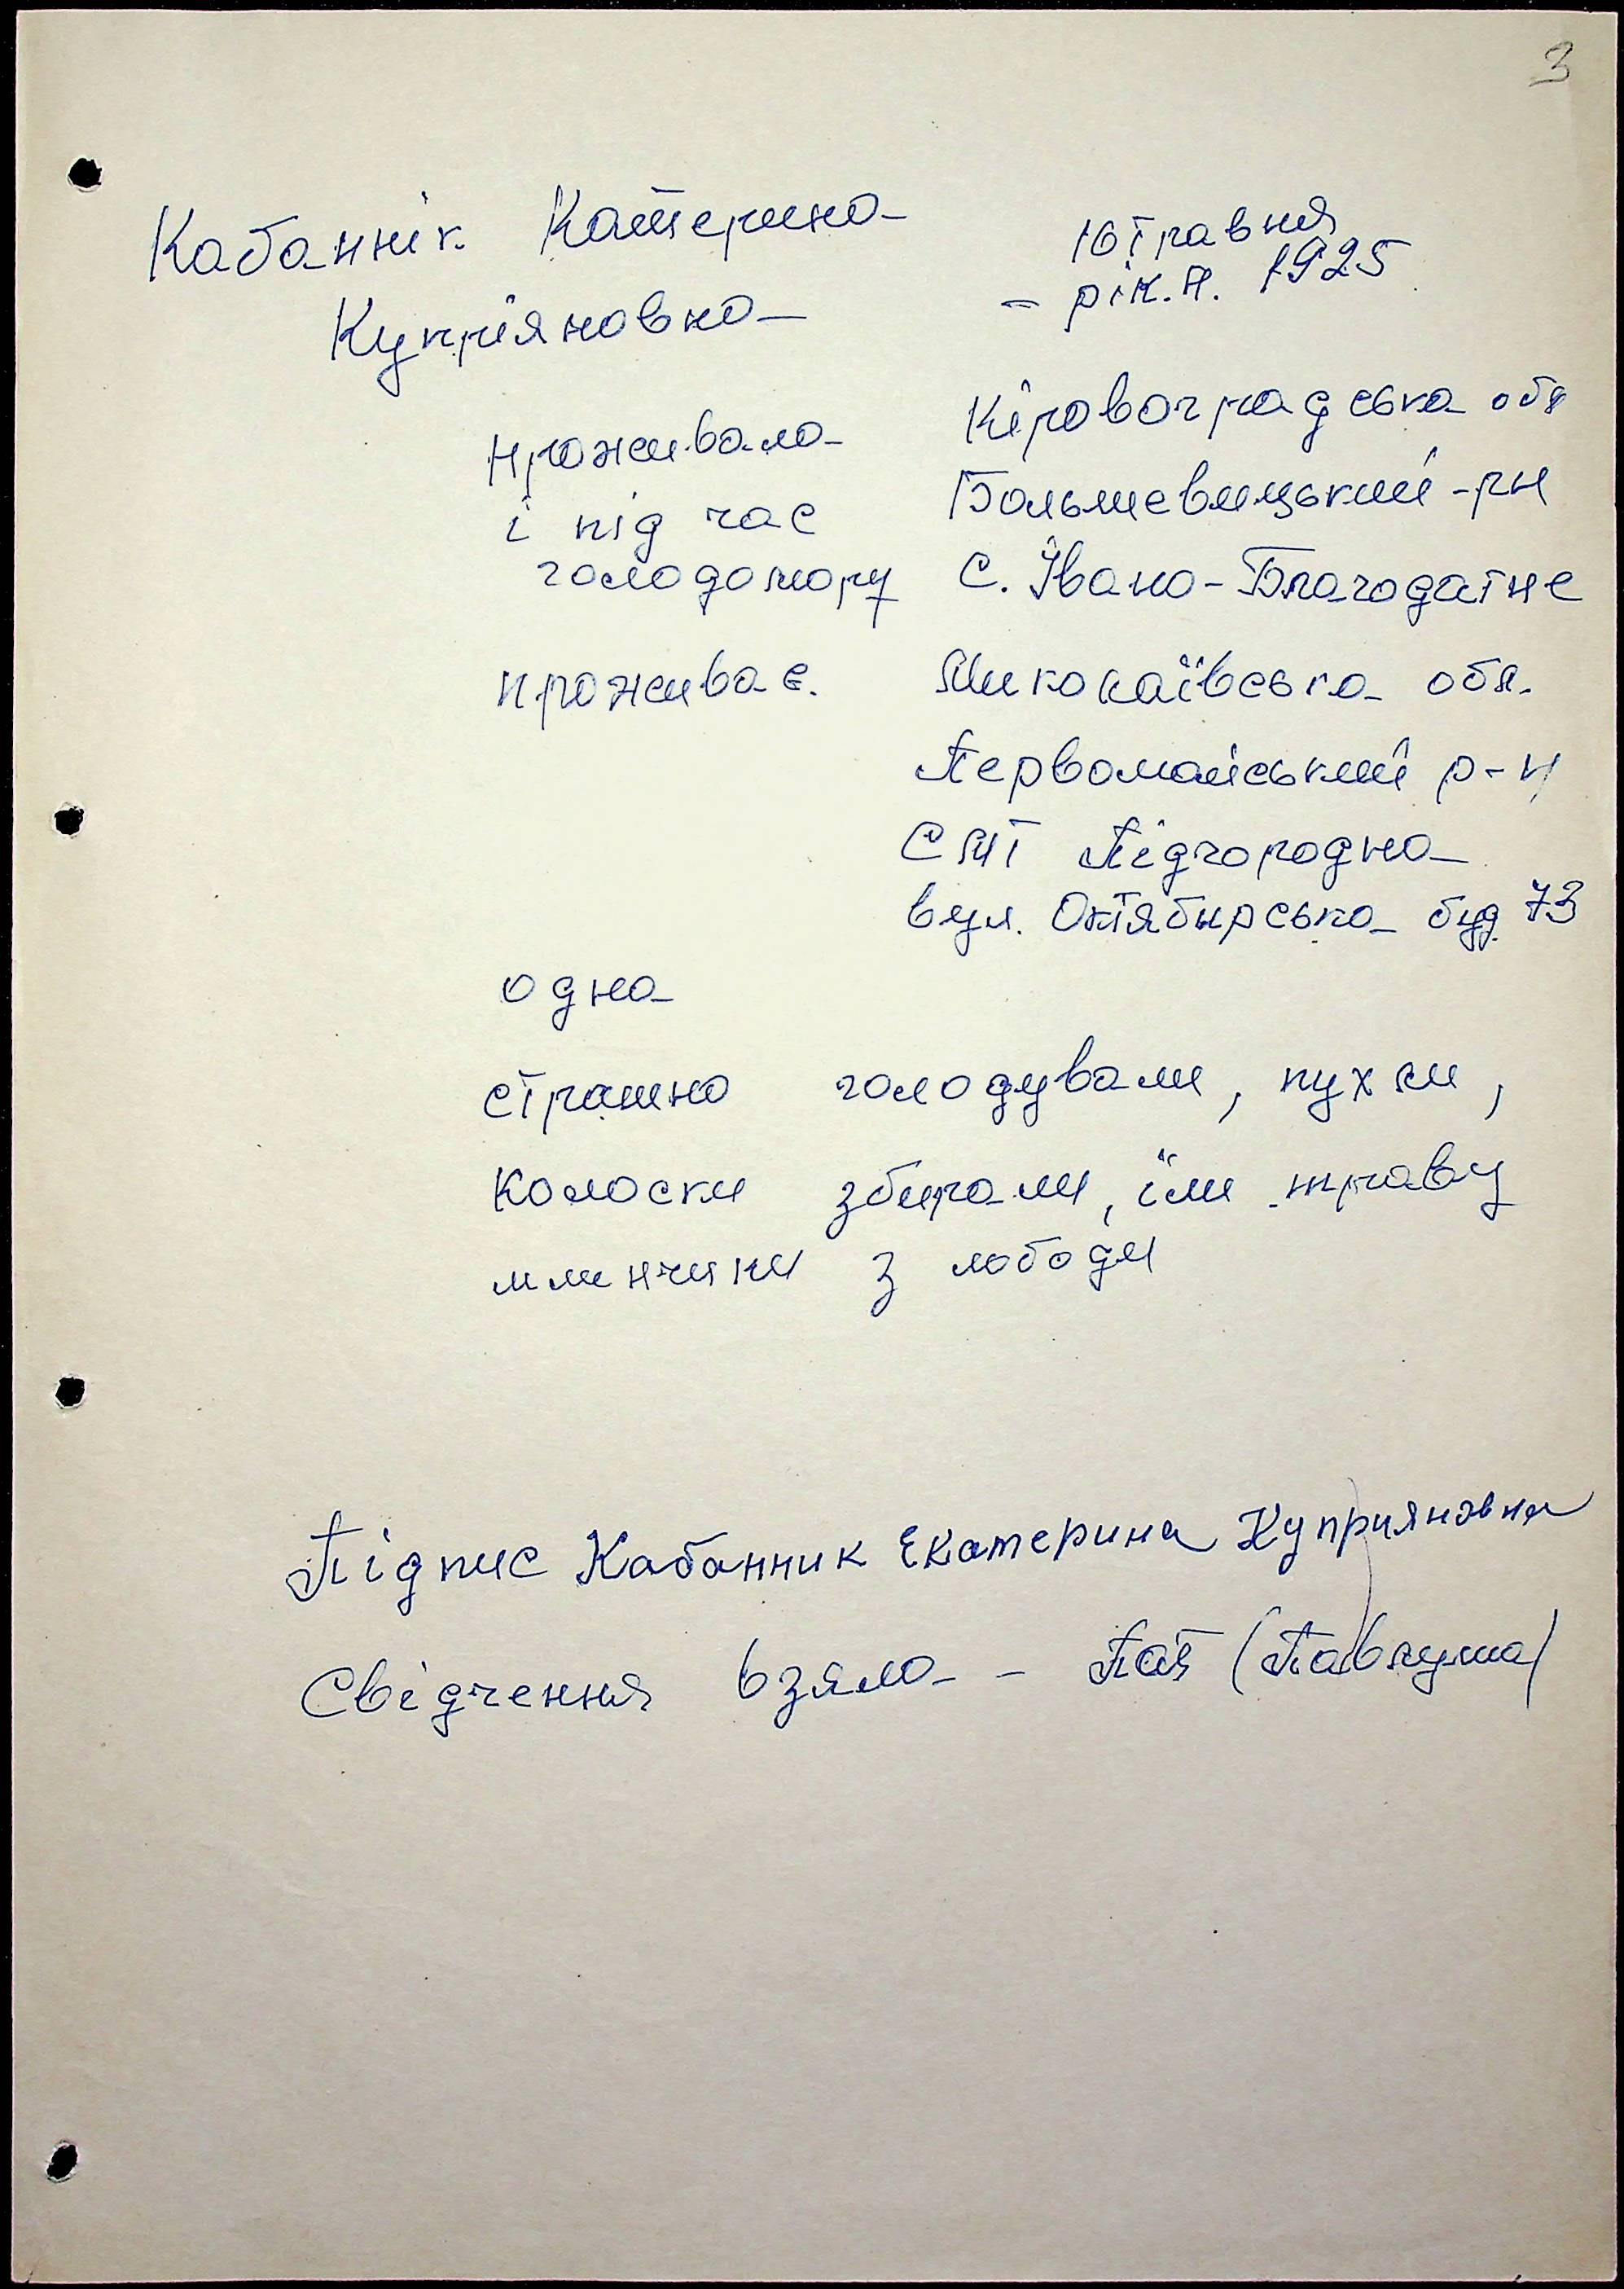 3
Кабаннік Катерина
10 травня
Купріяновна
- рік.н. 1925
проживала
Кіровоградська обл
і під час
Большевицький -рн
голодомору
с. Івано-Благодатне
проживає.
Миколаївська обл.
Первомайський р-н
СМТ Підгородна
вул. Октябрьська буд 73
одна
страшно голодували, пухли,
колоски збирали, їли траву
млинчики з лободи
Підпис Кабанник Екатерина Куприяновна
Свідчення взяла - (Павлуша)